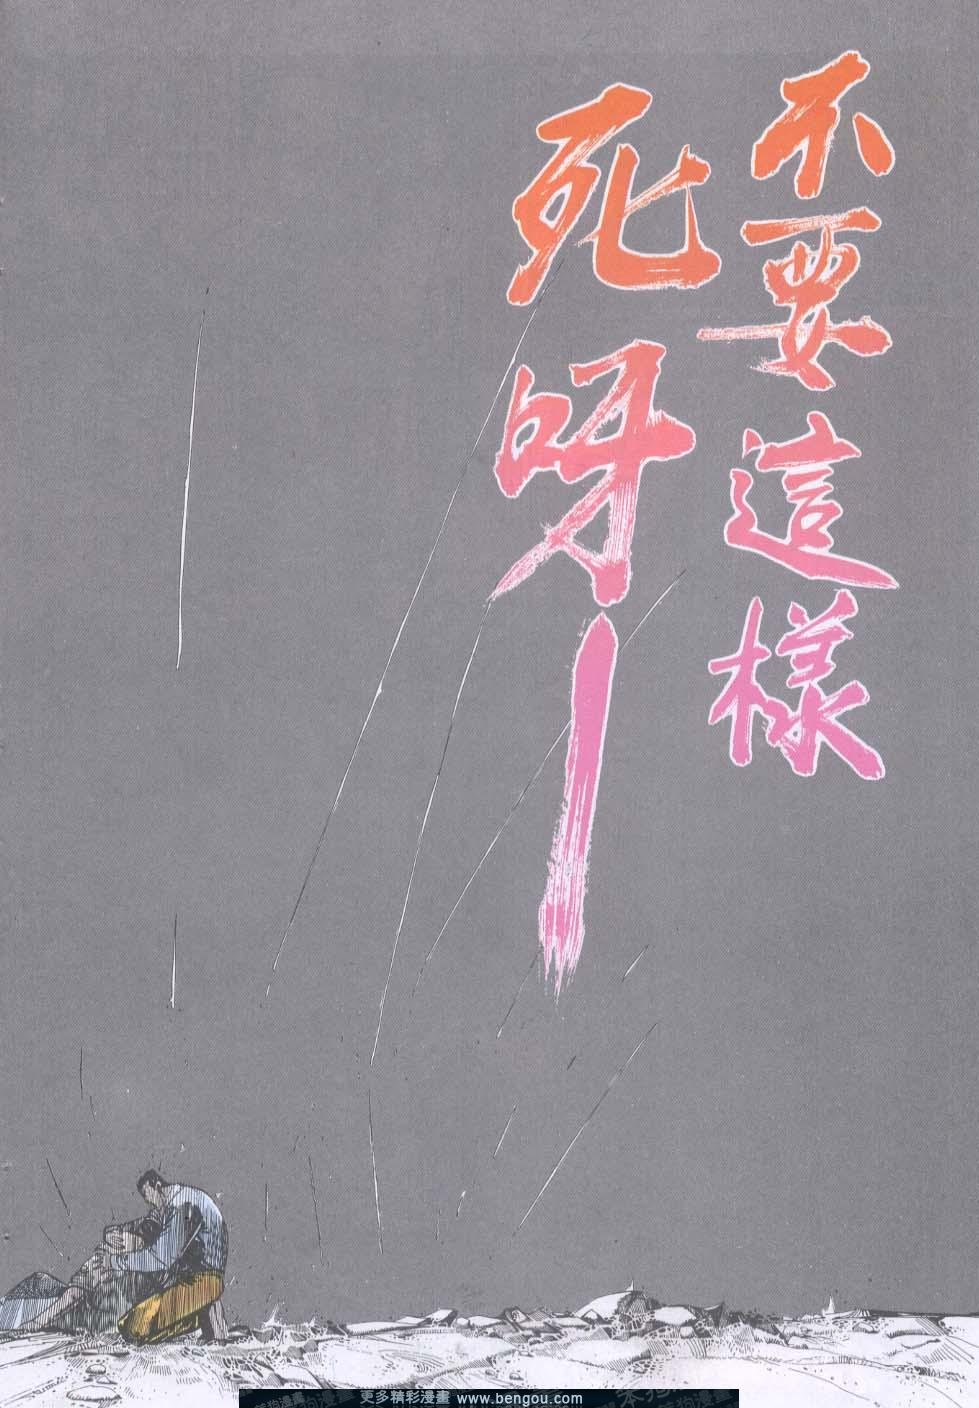 不要這樣
死呀—
更多精彩漫畫 www.bengou.com